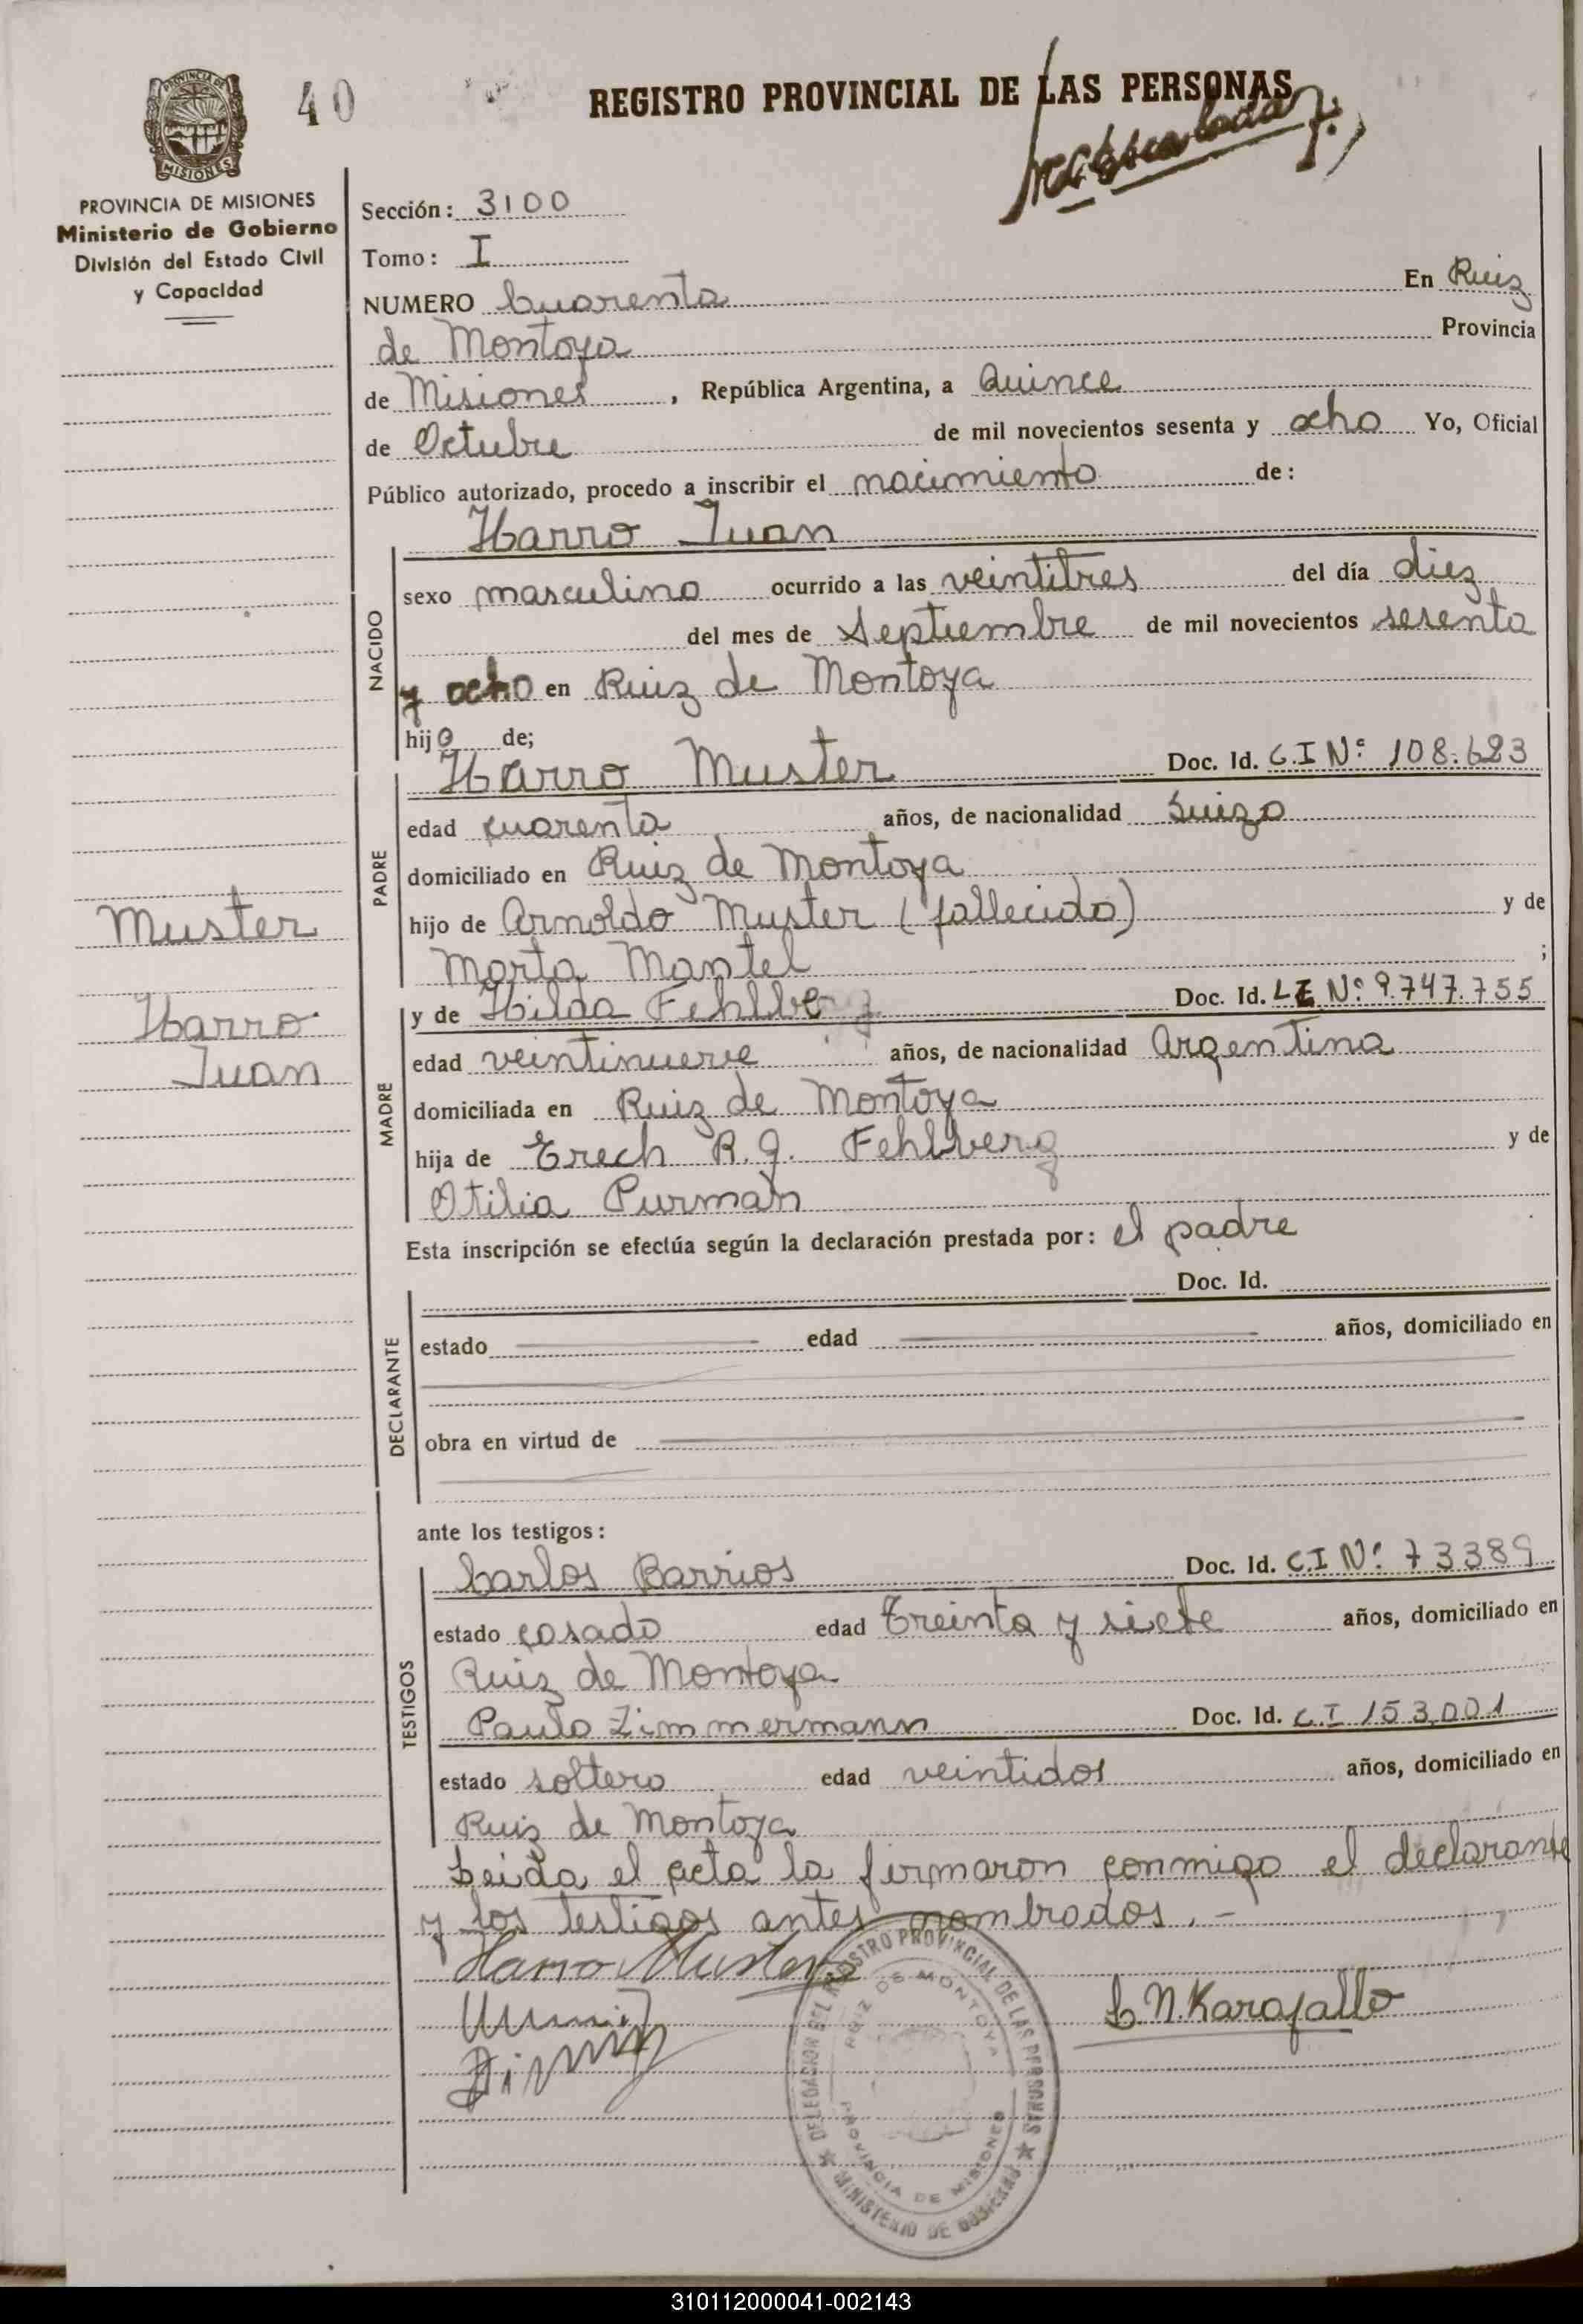 40
REGISTRO PROVINCIAL DE LAS PERSONAS
PROVINCIA DE MISIONES
MISIONES
PROVINCIA DE MISIONES
Ministerio de Gobierno
División del Estado Civil
y Capacidad
Sección: 3100
Tomo: I
NUMERO Cuarenta En Ruiz
de Montoya Provincia
de Misiones, República Argentina, a Quince
de Octubre de mil novecientos sesenta y ocho Yo, Oficial
Público autorizado, procedo a inscribir el nacimiento de:
Harro Juan
NACIDO
sexo masculino ocurrido a las veintitres del día diez
del mes de Septiembre de mil novecientos sesenta
y ocho en Ruiz de Montoya
hijo de;
PADRE
Harro Muster Doc. Id. C.I Nº 108.623
edad cuarenta años, de nacionalidad Suizo
domiciliado en Ruiz de Montoya
hijo de Arnoldo Muster (fallecido) y de
Marta Mantel ;
Muster
Harro
Juan
MADRE
y de Hilda Fehlberg Doc. Id. LE Nº 9.747.755
edad veintinueve años, de nacionalidad Argentina
domiciliada en Ruiz de Montoya
hija de Erech R. G. Fehlberg y de
Otilia Purman
Esta inscripción se efectúa según la declaración prestada por: el padre
DECLARANTE
Doc. Id.
estado edad años, domiciliado en
obra en virtud de
ante los testigos:
TESTIGOS
Carlos Barrios Doc. Id. C.I Nº 73389
estado casado edad treinta y siete años, domiciliado en
Ruiz de Montoya
Paulo Zimmermann Doc. Id. C.I 153,001
estado soltero edad veintidos años, domiciliado en
Ruiz de Montoya
Leida el acta la firmaron conmigo el declarante
y los testigos antes nombrados.-
Harro Muster
L. N. Karajallo
DELEGACION DEL REGISTRO PROVINCIAL DE LAS PERSONAS
RUIZ DE MONTOYA
PROVINCIA DE MISIONES
MINISTERIO DE GOBIERNO
310112000041-002143